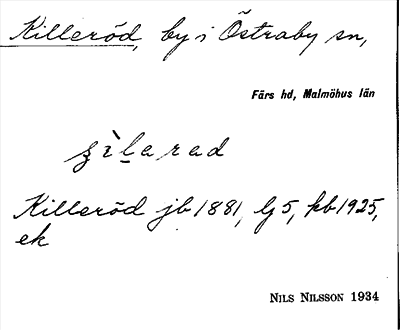 Killeröd, by i Östraby sn,
Färs hd, Malmöhus län
Killeröd jb 1881, lj 5, kb 1925,
ek
NILS NILSSON 1934